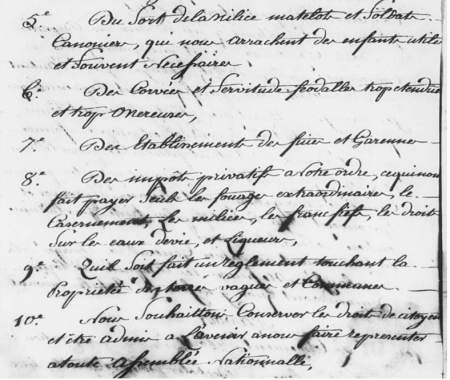 5.e Du Sort de la Milice matelote et Soldats
Canoniers, qui nous arrachent des enfants utiles
et Souvent Nécessaires
6.e Des Corvées et Servitudes féodalles trop étendues
et trop Onereuses,
7.e Des Etablissements des fuies et Garennes
8.e Des impots privatifs a Notre ordre, ce qui nous
fait payer Seuls les fouages extraordinaires, le
Casernement, les milices, les francs fiefs, les droits
Sur les eaux devie, et Liqueurs,
9.e Quil Soit fait un reglement touchant la
Propriété des terres vagues et Communes
10.e Nous Souhaittons Conserver les droits de citoyen
et être admis a l'avenir a nous faire representer
a toute assemblée Nationnalle,